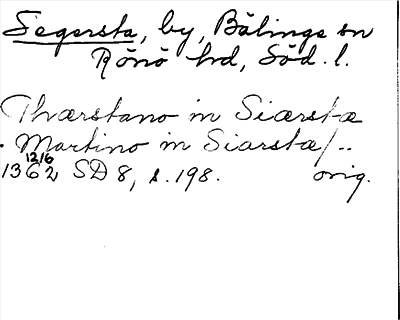 Segersta, by, Bälinge sn
Rönö hd, Söd. l.
Thærstano in Siærstæ
. Martino in Siarstæ/..
12/6
1362 SD 8, s. 198. orig.